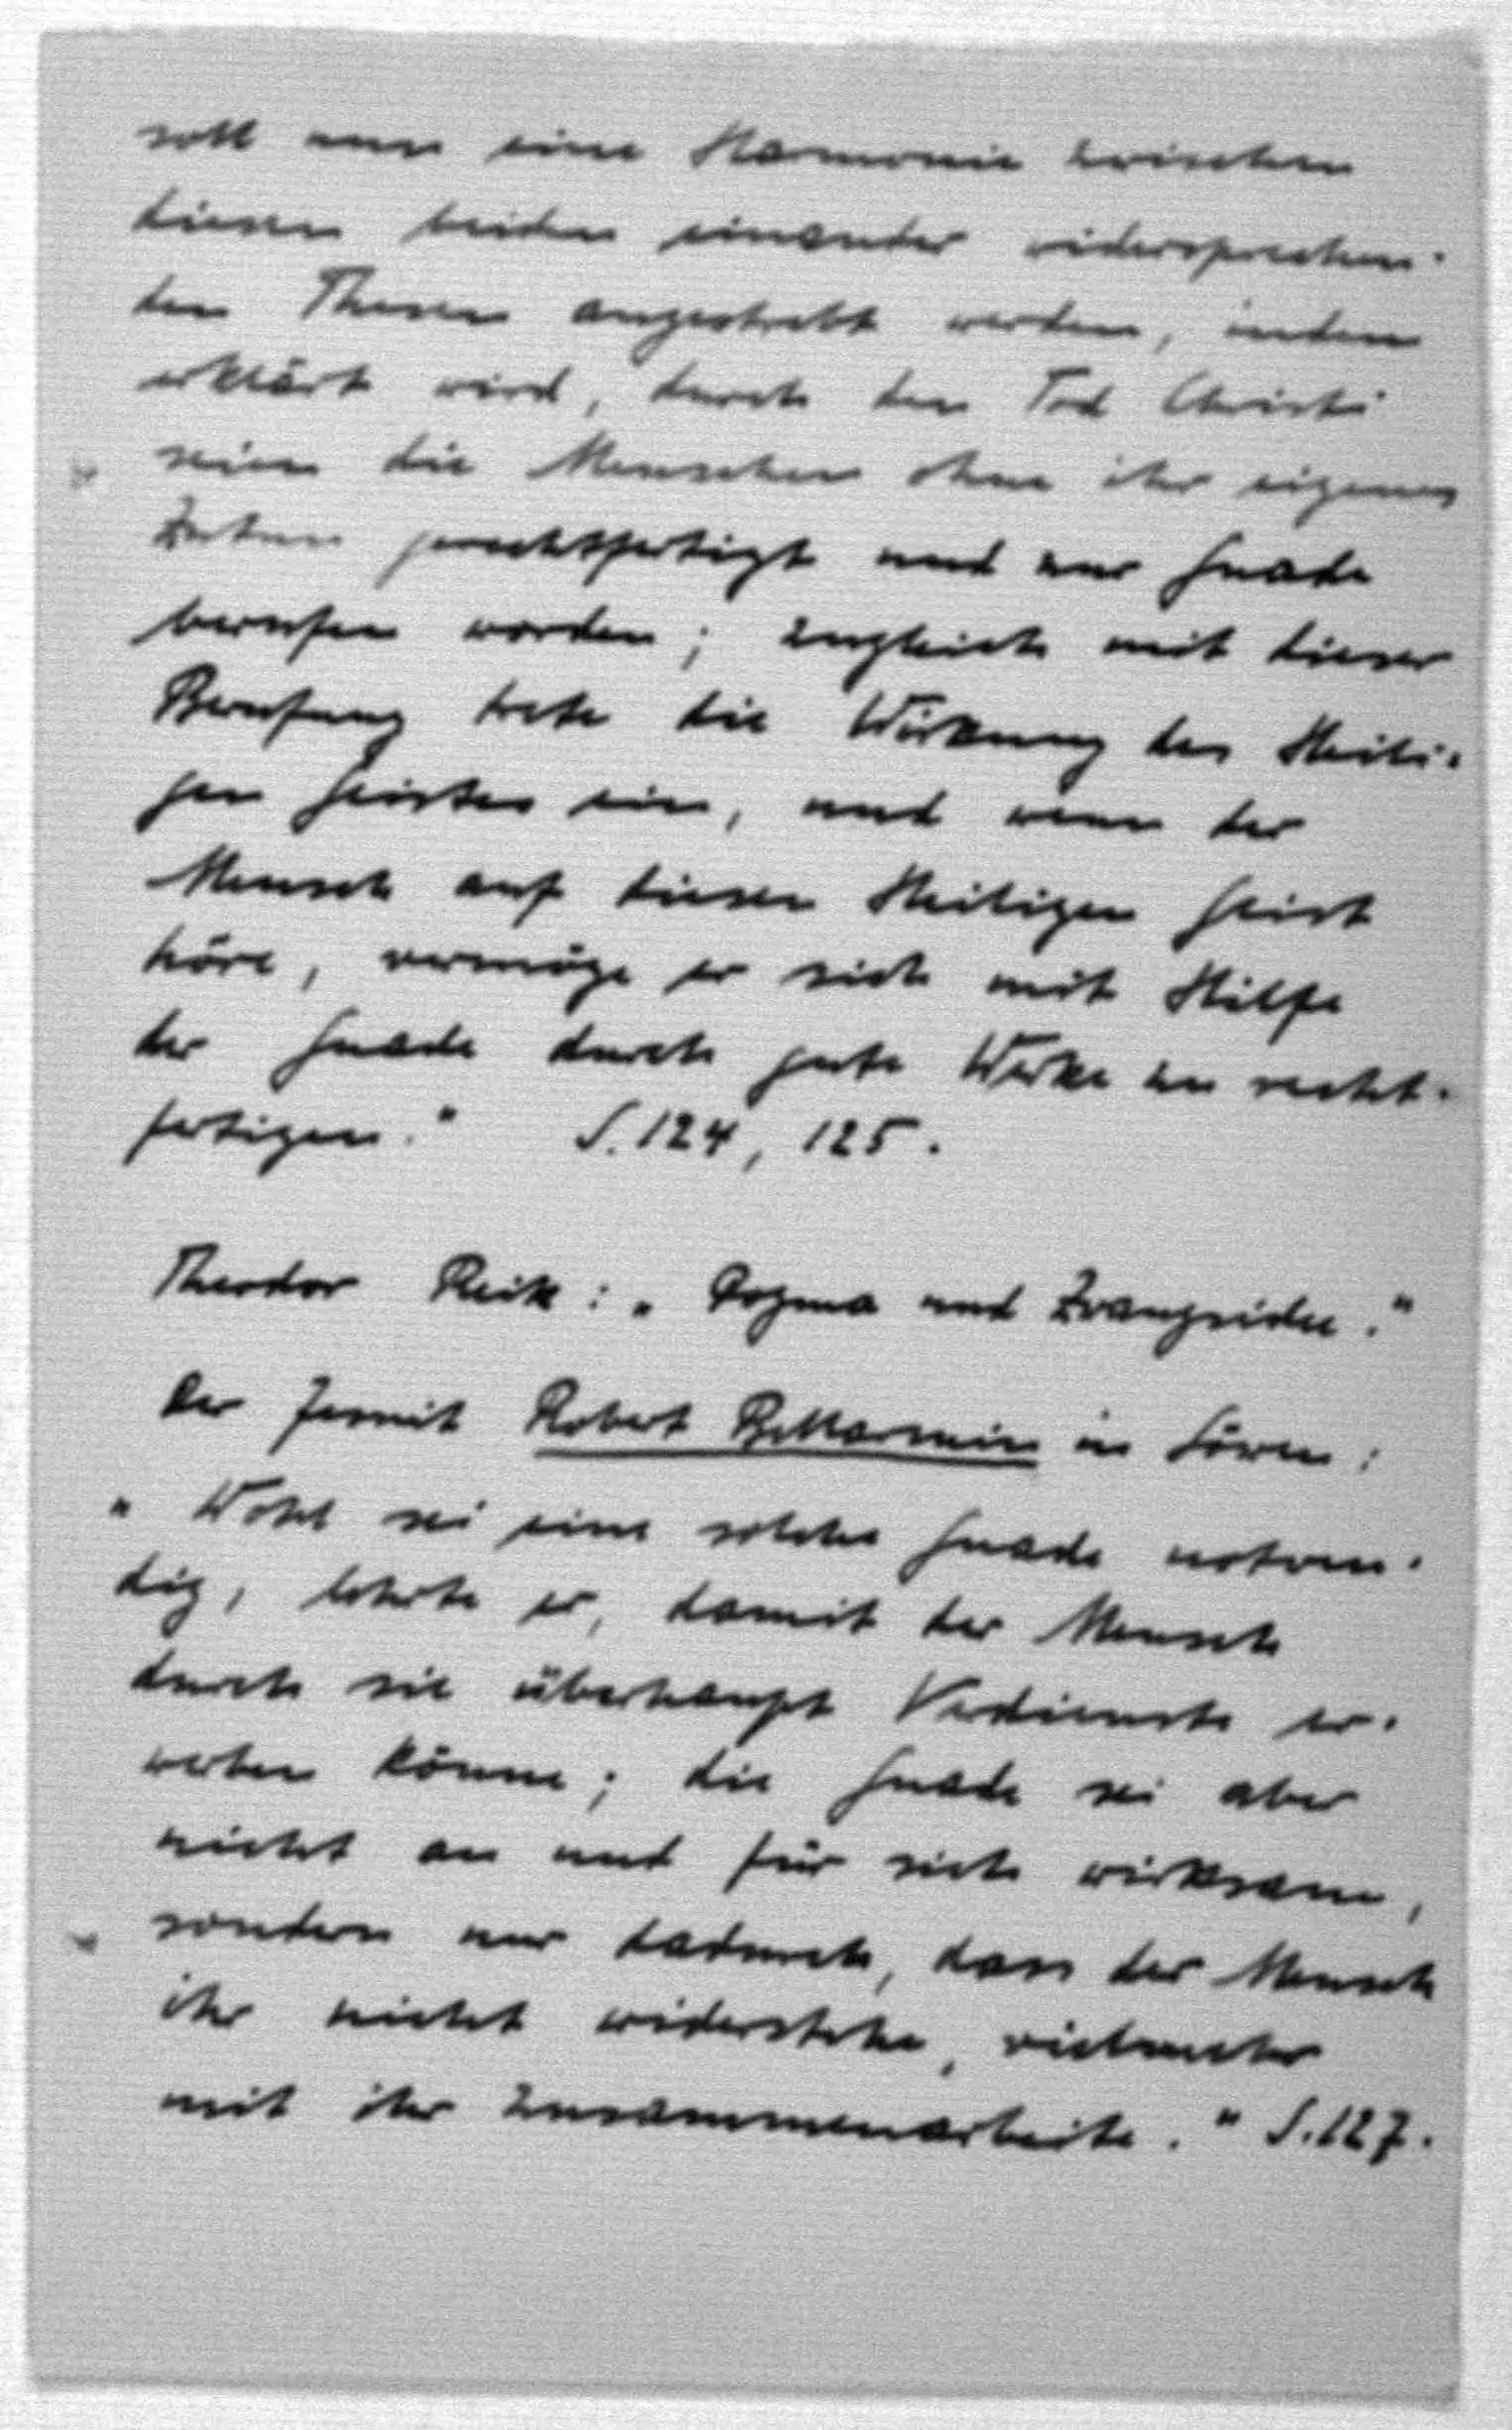 soll nun eine Harmonie zwischen
diesen beiden einander widersprechen-
den Thesen angestrebt werden, indem
erklärt wird, durch den Tod Christi
seien die Menschen ohne ihr eigenes
Zutun gerechtfertigt und zur Gnade
berufen worden; zugleich mit dieser
Berufung trete die Wirkung des Heili-
gen Geistes ein, und wenn der
Mensch auf diesen Heiligen Geist
höre, vermöge er sich mit Hilfe
der Gnade durch gute Werke zu recht-
fertigen." S. 124, 125.
Theodor Reik: „Dogma und Zwangsidee."
Der Jesuit Robert Bellarmin in Löwen:
„Wohl sei eine solche Gnade notwen-
dig, lehrte er, damit der Mensch
durch sie überhaupt Verdienste er-
werben könne; die Gnade sei aber
nicht an und für sich wirksam,
sondern nur dadurch, dass der Mensch
ihr nicht widerstehe, vielmehr
mit ihr zusammenarbeite." S. 127.